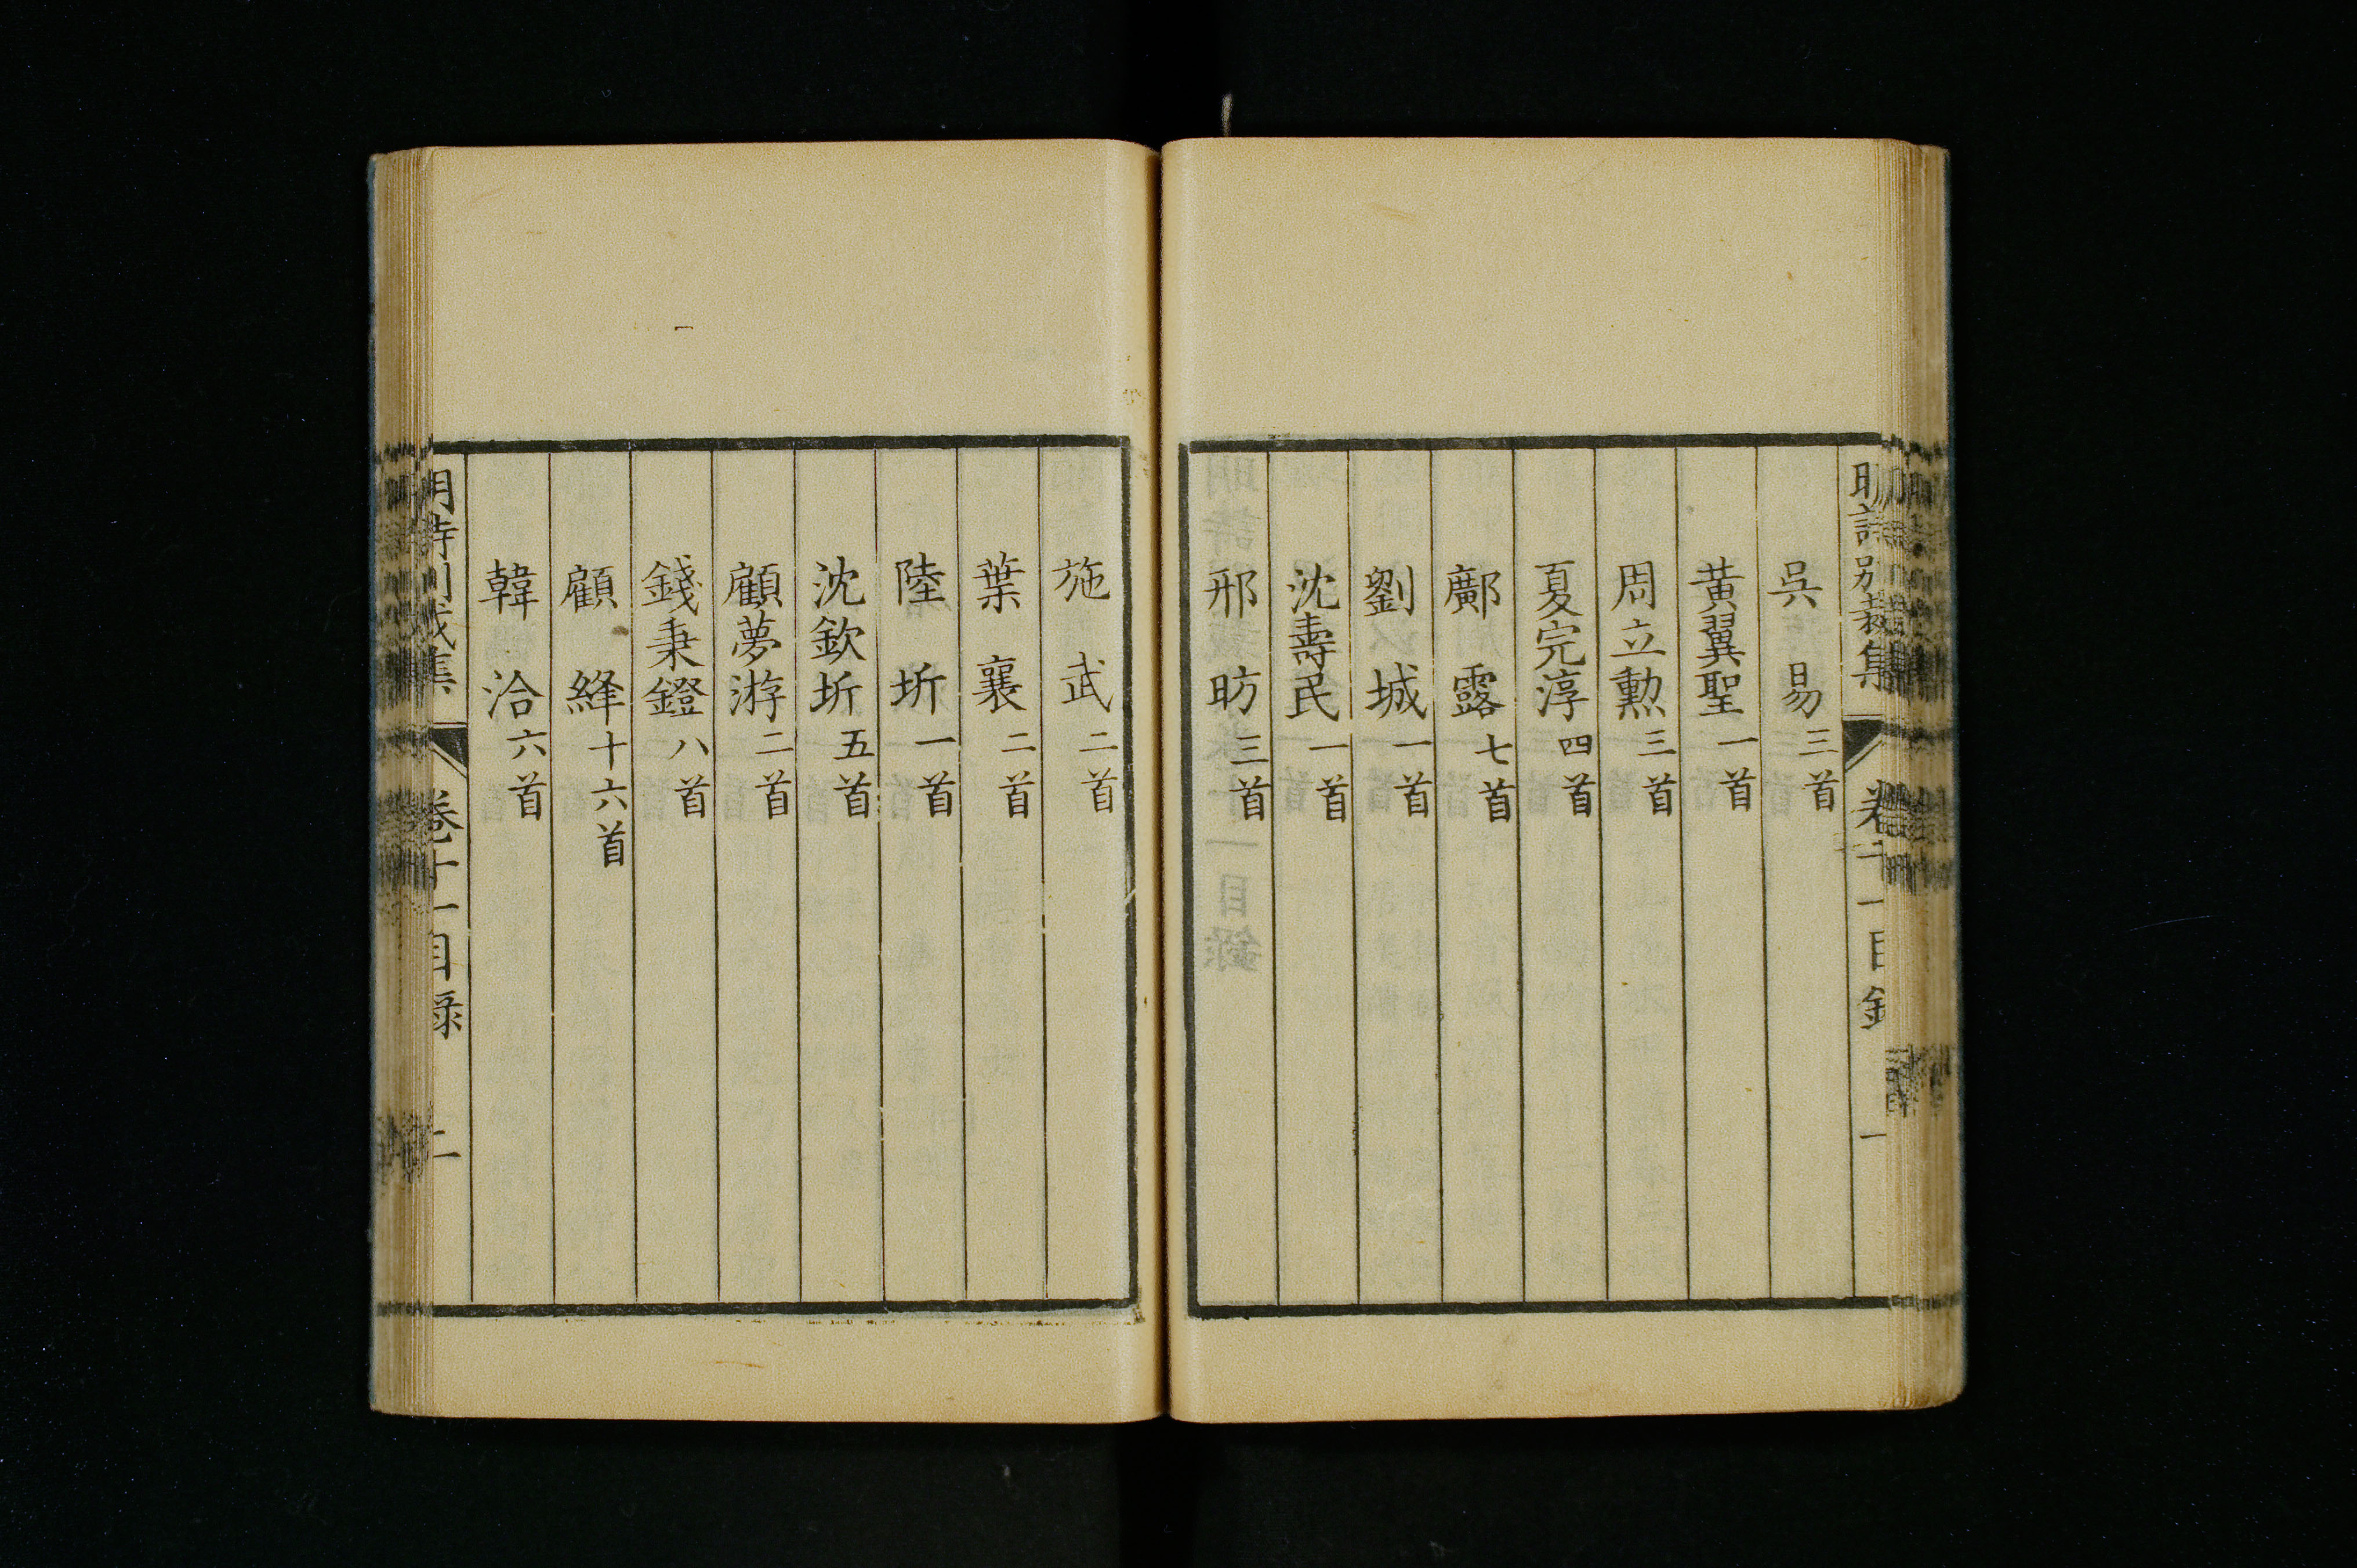 明詩別裁集 卷十一目錄 一
吳易三首
黃翼聖一首
周立勲三首
夏完淳四首
鄺露七首
劉城一首
沈壽民一首
邢昉三首
施武二首
葉襄二首
陸圻一首
沈欽圻五首
顧夢游二首
錢秉鐙八首
顧絳十六首
韓洽六首
明詩別裁集 卷十一目錄 二